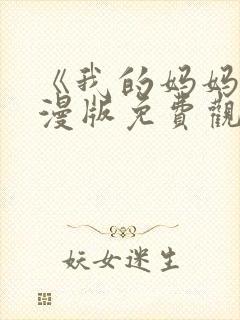 《我的妈妈
漫版免費觀
妖女迷生